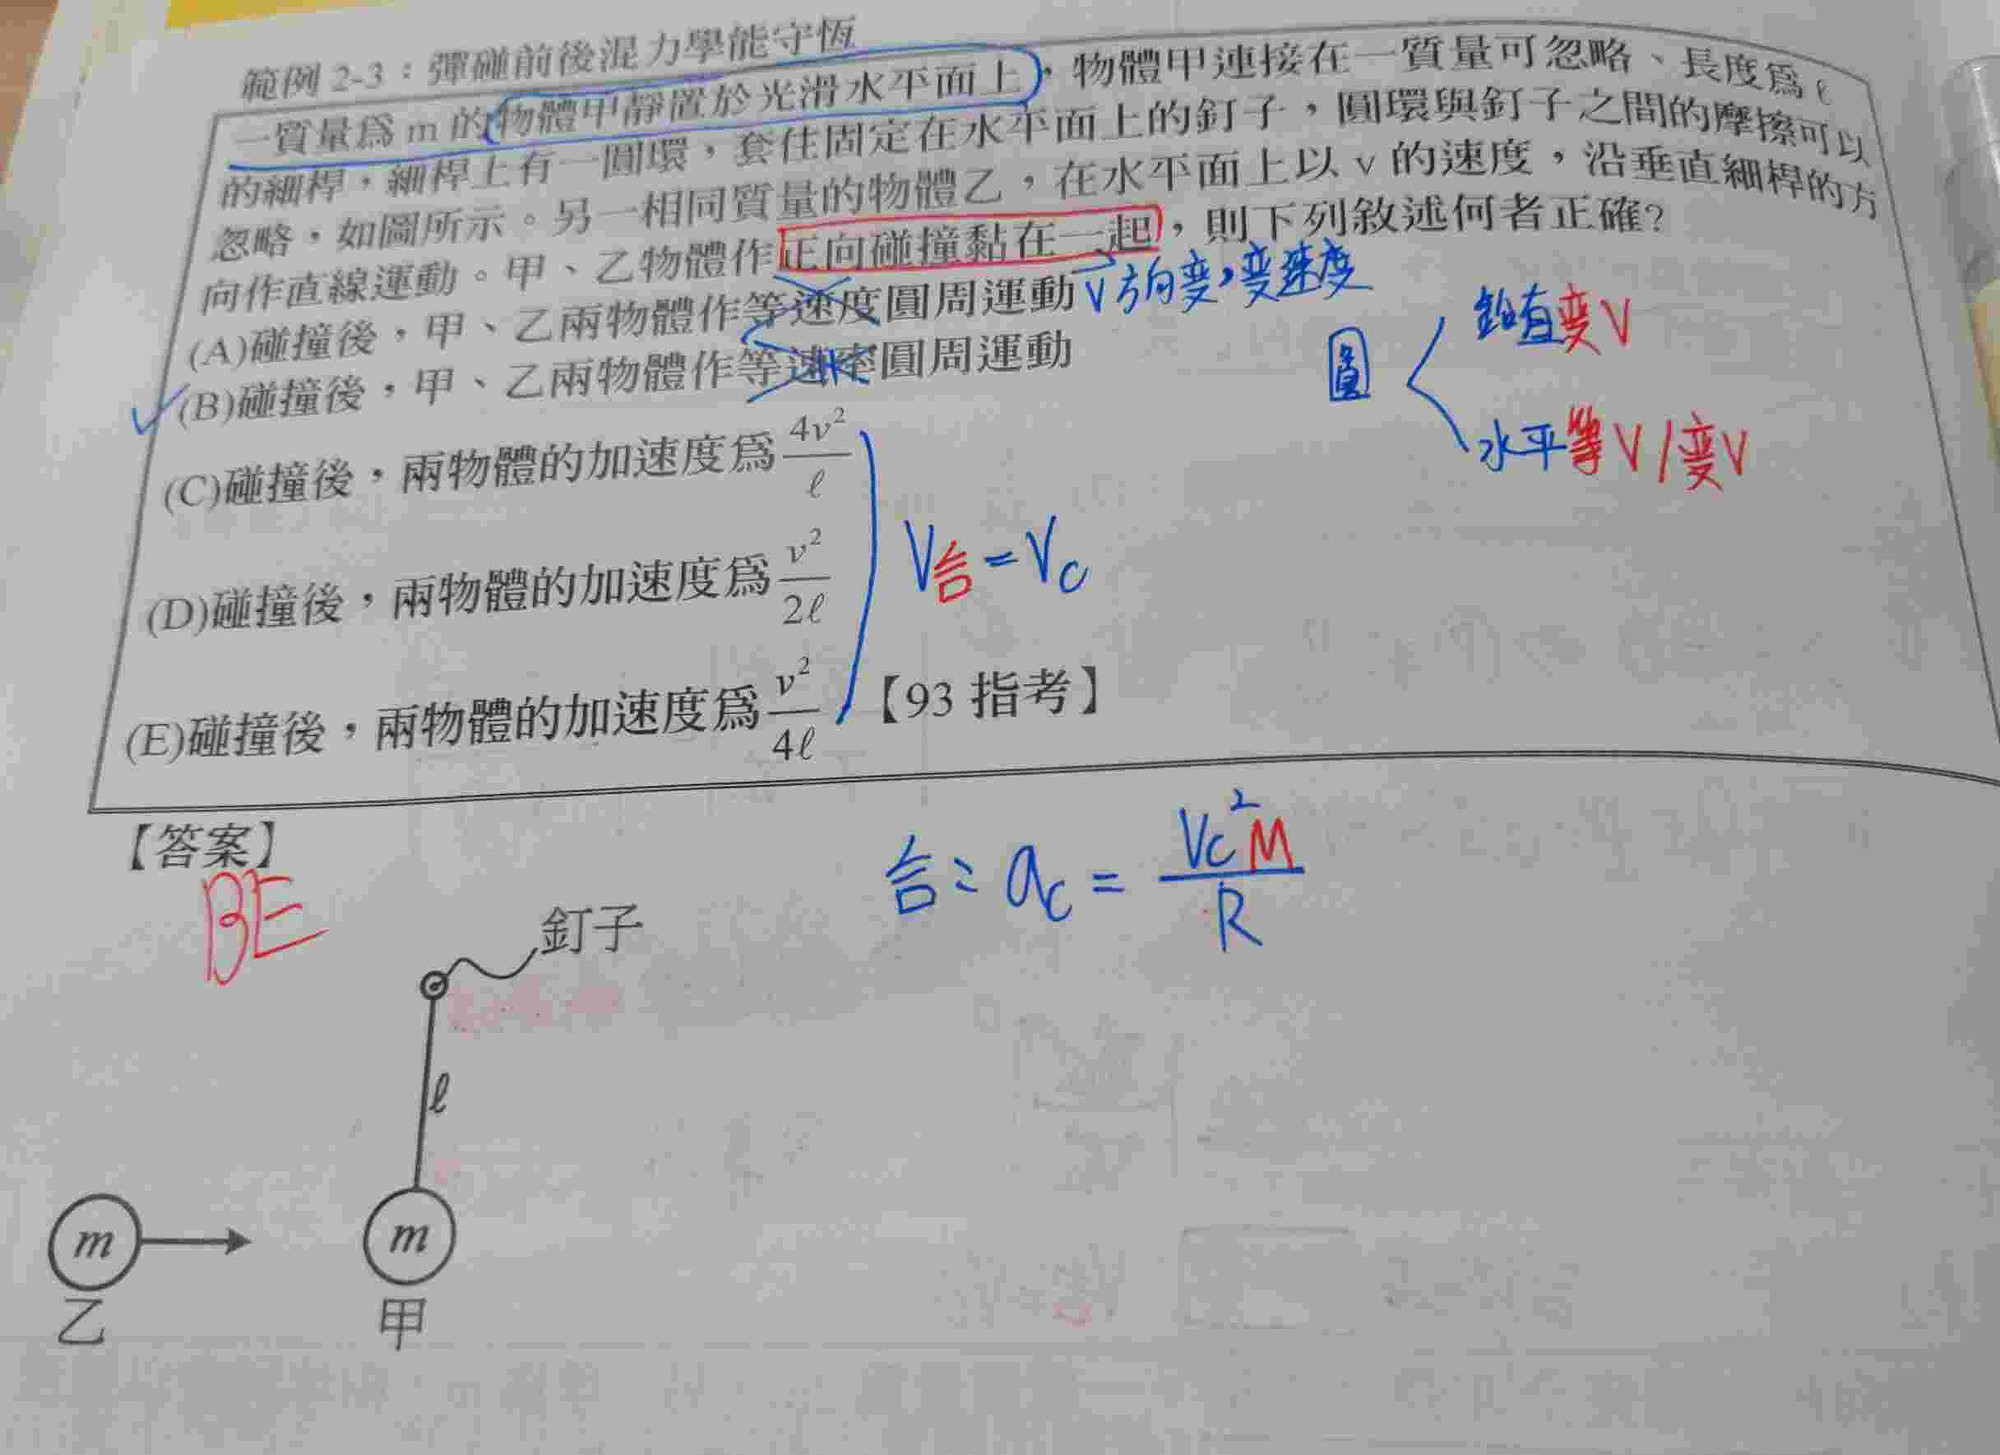 範例 2-3：彈碰前後混力學能守恆
一質量爲 m 的物體甲靜置於光滑水平面上，物體甲連接在一質量可忽略、長度爲 ℓ
的細桿，細桿上有一圓環，套住固定在水平面上的釘子，圓環與釘子之間的摩擦可以
忽略，如圖所示。另一相同質量的物體乙，在水平面上以 v 的速度，沿垂直細桿的方
向作直線運動。甲、乙物體作正向碰撞黏在一起，則下列敘述何者正確?
(A)碰撞後，甲、乙兩物體作等速度圓周運動 V方向变，变速度
(B)碰撞後，甲、乙兩物體作等速率圓周運動
圓
鉛直变V
水平等V/变V
(C)碰撞後，兩物體的加速度爲 4v²/ℓ
(D)碰撞後，兩物體的加速度爲 v²/2ℓ
V合=Vc
(E)碰撞後，兩物體的加速度爲 v²/4ℓ 【93 指考】
【答案】
BE
合：ac = Vc²M/R
釘子
ℓ
m
m
乙
甲